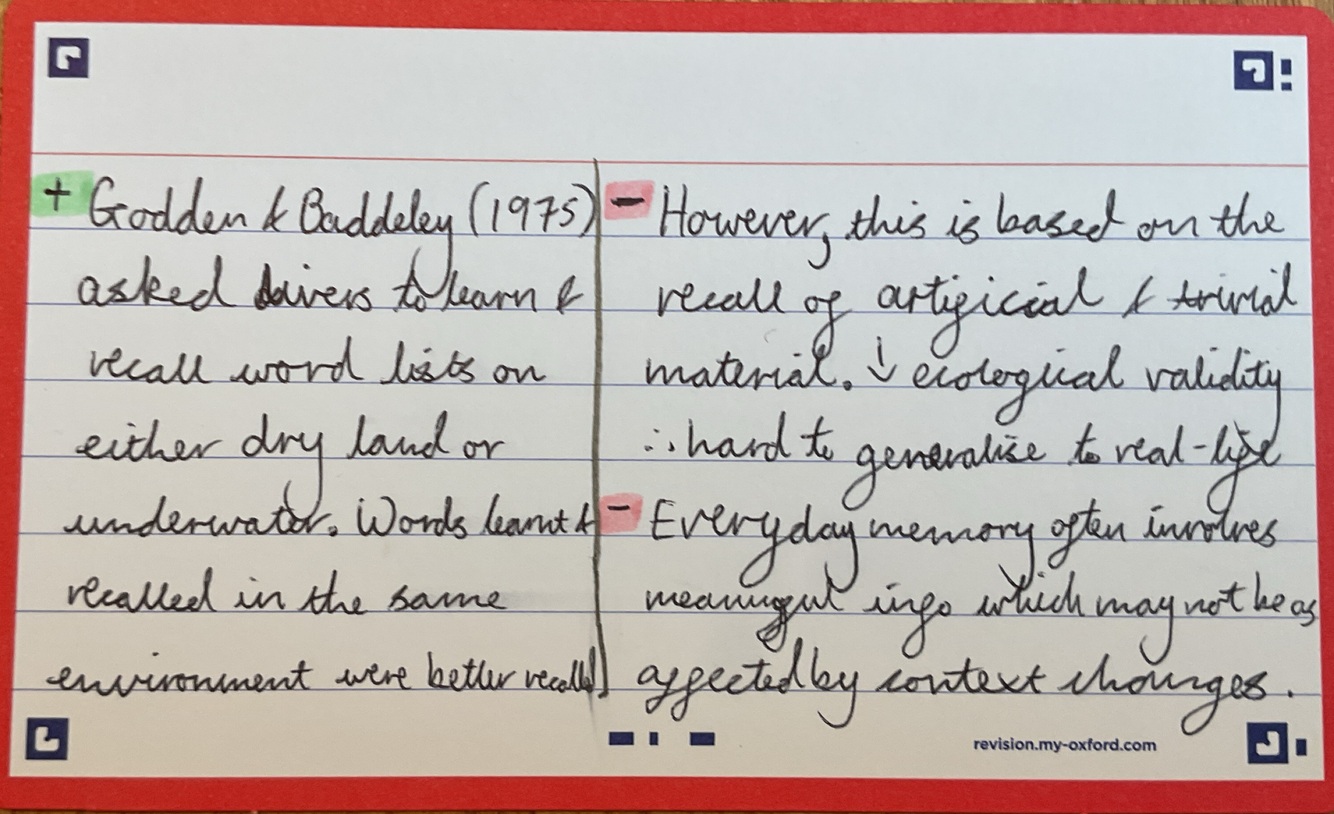 + Godden & Baddeley (1975)
asked divers to learn &
recall word lists on
either dry land or
underwater. Words learnt &
recalled in the same
environment were better recalled
- However, this is based on the
recall of artificial & trivial
material. ↓ ecological validity
∴ hard to generalise to real-life
- Everyday memory often involves
meaningful info which may not be as
affected by context changes.
revision.my-oxford.com